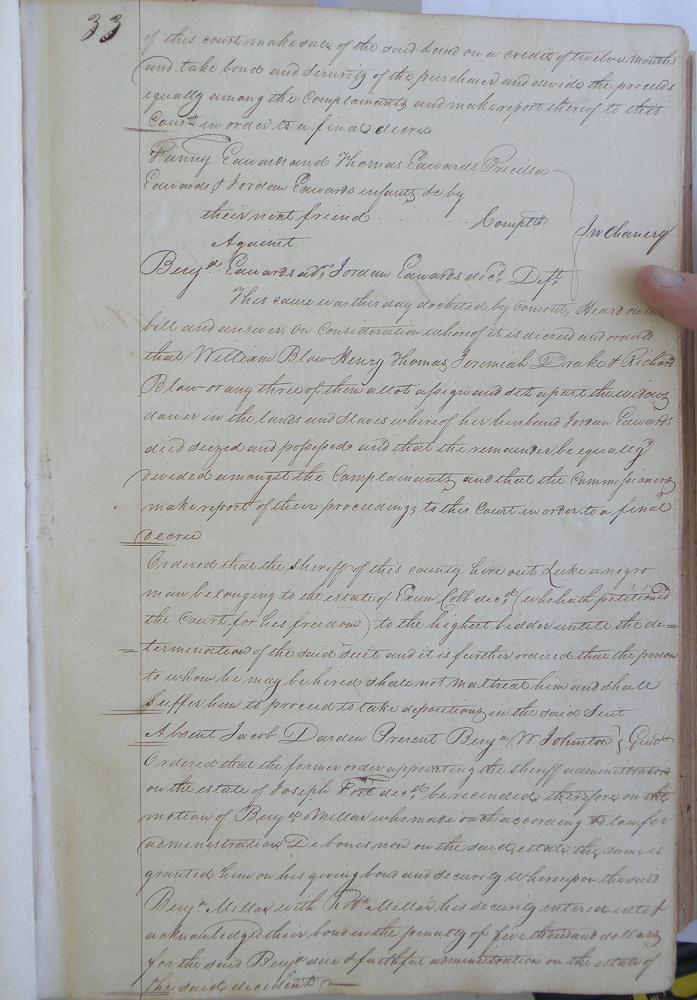 33
of this court make sale of the said land on a credit of twelve months
and take bond and security of the purchaser and divide the proceeds
equally among the Complainants and make report thereof to this
Court in order to a final decree
Fanny Edwards and Thomas Edwards Pricilla
Edwards & Jordan Edwards infants &c by
their next friend Complts
In Chancery
Against
Benjn Edwards adr Jordan Edwards decd Deft
This cause was this day docketed by consent, Heard on
bill and answer, On Consideration whereof it is decreed and ordered
that William Blow Henry Thomas Jeremiah Drake & Richard
Blow or any three of them allot assign and set apart the widows
dower in the lands and slaves whereof her husband Jordan Edwards
died seized and possessed and that the remainder be equally
divided amongst the Complainants and that the Commissioners
make report of their proceedings to this Court in order to a final
decree
Ordered that the sheriff of this county hire out Luke a negro
man belonging to the estate of Exum Cobb decd (who hath petitioned
the Court for his freedom) to the highest bidder until the de=
=termination of the said suit and it is further ordered that the person
to whom he may be hired shall not maltreat him and shall
Suffer him to proceed to take depositions in the said Suit
Absent Jacob Darden Present Benjn W. Johnston Gent
Ordered that the former order appointing the sheriff administrator
on the estate of Joseph Fort decd be recinded, therefore on the
motion of Benjn Millar who made oath according to law for
administration De bonis non on the said estate the same is
granted him on his giving bond and security Whereupon the said
Benjn Millar with Robt Millar his security entered into &
acknowledged their bond in the penalty of five thousand dollars
for the said Benjn due & faithful administration on the estate of
the said decedent